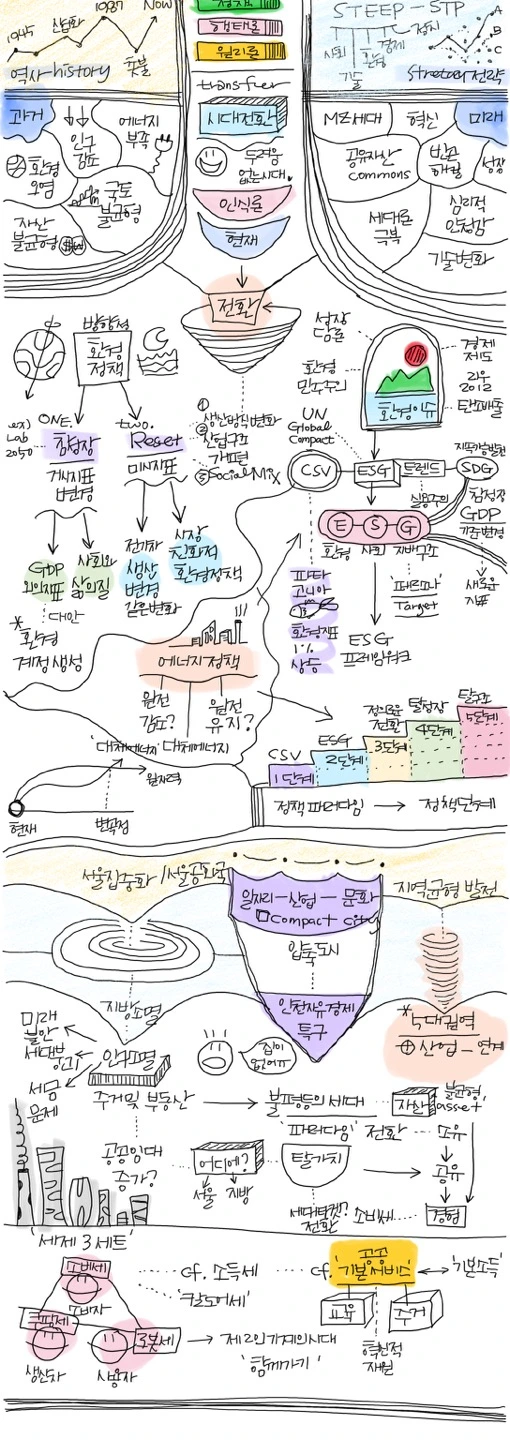 1945
산업화
1987
Now
촛불
역사 history
정책론
행태론
원리론
STEEP - STP
사회
기술
환경
경제
정치
A
B
C
전략
과거
인구
감소
에너지
부족
환경
오염
국토
불균형
자산
불균형
transfuer
시대전환
두려움
없는시대.
인식론
현재
MZ세대
혁신
미래
공유자산
commons
빈곤
해결
성장
세대론
극복
심리적
안정감
기술변화
전환
방향성
환경
정책
ONE.
two.
Lab
2050
참성장
Reset
거시지표
변경
미시지표
① 생산방식변화
② 산업구조
개편
③ Social Mix
GDP
외의지표
사회와
삶의질
전기차
생산
변경
같은변화
시장
친화적
환경정책
대안
* 환경
계정생성
성장
담론
환경
민주주의
경제
제도
리우
2012
탄소배출
환경이슈
UN
Global
Compact
CSV
ESG
트렌드
SDG
지속가능발전
실용주의
참성장
GDP
기준변경
E - S - G
환경 사회 지배구조
새로운
지표
파타
고니아
환경지표
1%
상등
'퍼포먼스'
Target
ESG
프레임워크
에너지정책
원전
감소?
원전
유지?
'대체에너지' 대체에너지
원자력
현재
변곡점
CSV
1단계
ESG
2단계
정의로운
전환
3단계
탈성장
4단계
탈구조
5단계
정책 패러다임 → 정책단계
서울집중화 / 서울공화국
일자리 - 산업 - 문화
□ Compact city
압축도시
안전자유경제
특구
지역균형 발전
* 5대권역
⊕ 산업 - 연계
지방소멸
미래
불안
인구소멸
세금
문제
집이
없어유
주거및 부동산
불평등의 세대
자산
불균형
asset
'패러다임' 전환
소유
공유
경험
공공임대
증가?
어디에?
서울 지방
탈가치
전환
소비세
'세제 3세트'
소비세
소비자
로봇세
생산자
사용자
cf. 소득세
'칼도어세'
cf.
공공
'기본서비스'
'기본소득'
교육
주거
혁신적
재원
→ 제2의기계의시대
'함께가기'